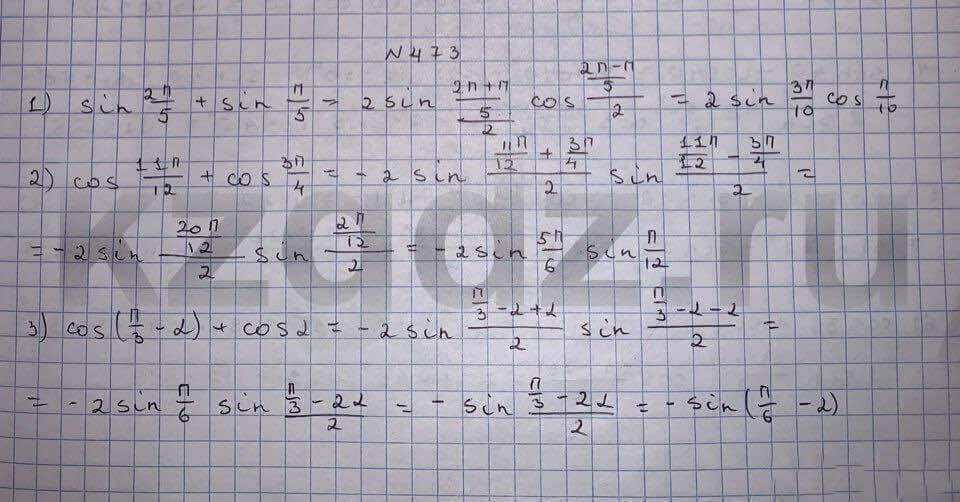 N 473
1) sin 2π/5 + sin π/5 = 2 sin ((2π+π)/5)/2 cos ((2π-π)/5)/2 = 2 sin 3π/10 cos π/10
2) cos 11π/12 + cos 3π/4 = - 2 sin (11π/12 + 3π/4)/2 sin (11π/12 - 3π/4)/2 =
= - 2 sin (20π/12)/2 sin (2π/12)/2 = - 2 sin 5π/6 sin π/12
3) cos(π/3 - α) + cos α = - 2 sin (π/3 - α + α)/2 sin (π/3 - α - α)/2 =
= - 2 sin π/6 sin (π/3 - 2α)/2 = - sin (π/3 - 2α)/2 = - sin(π/6 - α)
kzgdz.ru